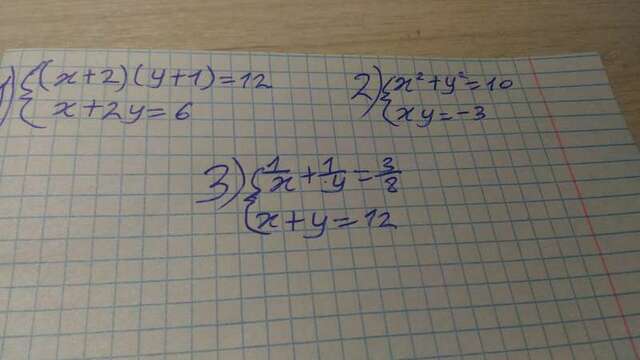 1) { (x+2)(y+1)=12
x+2y=6
2) { x²+y²=10
xy=-3
3) { 1/x + 1/y = 3/8
x+y=12